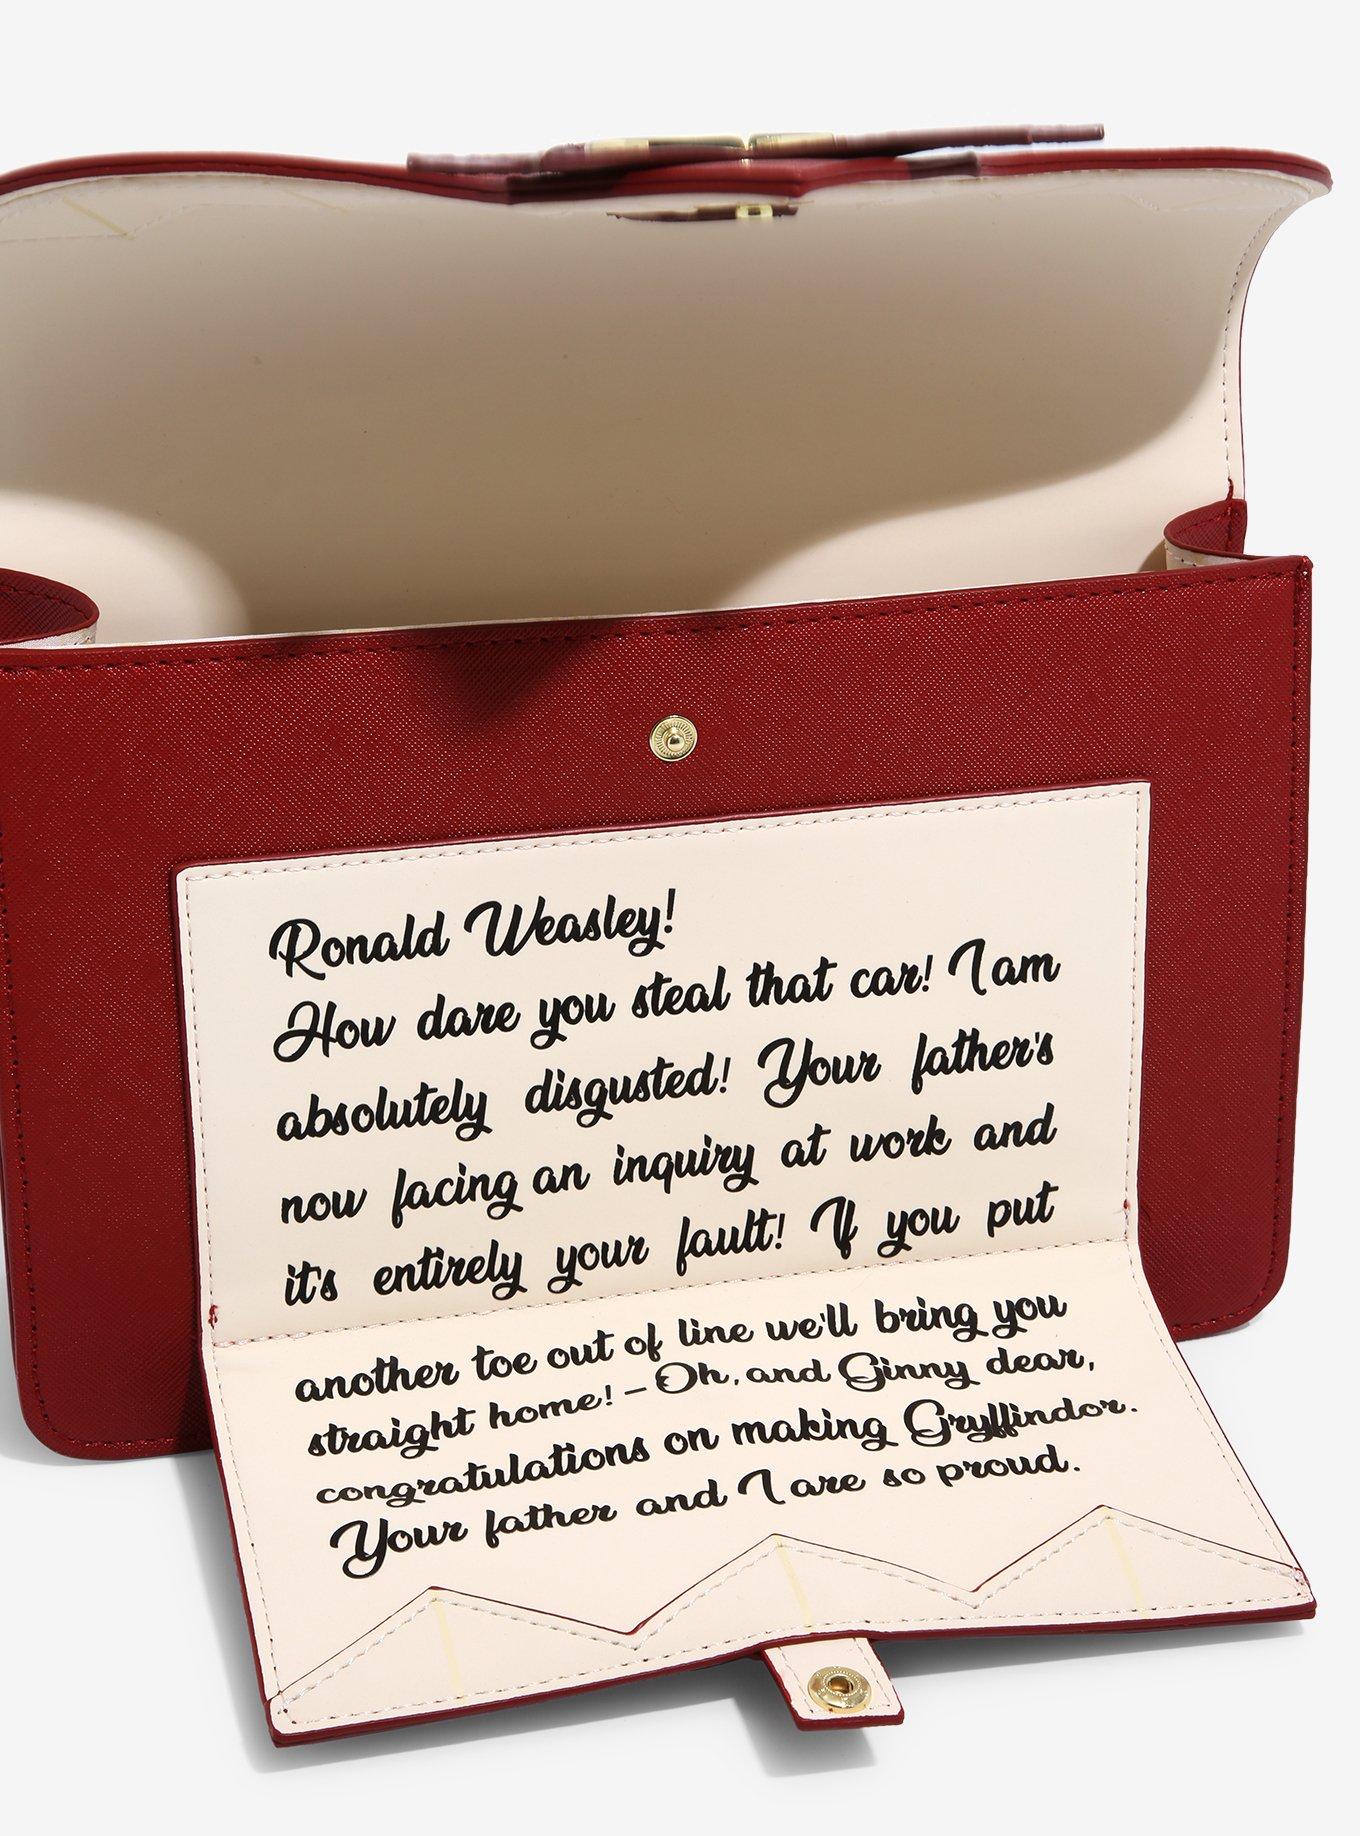 Ronald Weasley!
How dare you steal that car! I am
absolutely disgusted! Your father's
now facing an inquiry at work and
it's entirely your fault! If you put
another toe out of line we'll bring you
straight home! – Oh, and Ginny dear,
congratulations on making Gryffindor.
Your father and I are so proud.